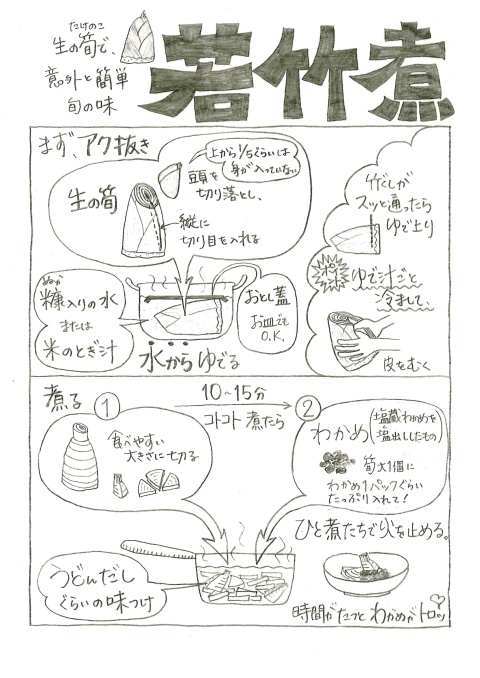 たけのこ
生の筍で、
意外と簡単
旬の味
若竹煮
まず、アク抜き
上から1/5ぐらいは
身が入っていない
頭を
切り落とし、
生の筍
縦に
切り目を入れる
ぬか
糠入りの水
または
米のとぎ汁
水からゆでる
おとし蓋
お皿でも
O.K.
竹ぐしが
スッと通ったら
ゆで上り
ポイント
ゆで汁ごと
冷まして、
皮をむく
煮る
①
食べやすい
大きさに切る
10〜15分
コトコト煮たら
②
わかめ
塩蔵わかめを
塩出ししたもの
筍大1個に
わかめ1パックぐらい
たっぷり入れて!
うどんだし
ぐらいの味つけ
ひと煮たちで火を止める。
時間がたつとわかめがトロッ♡